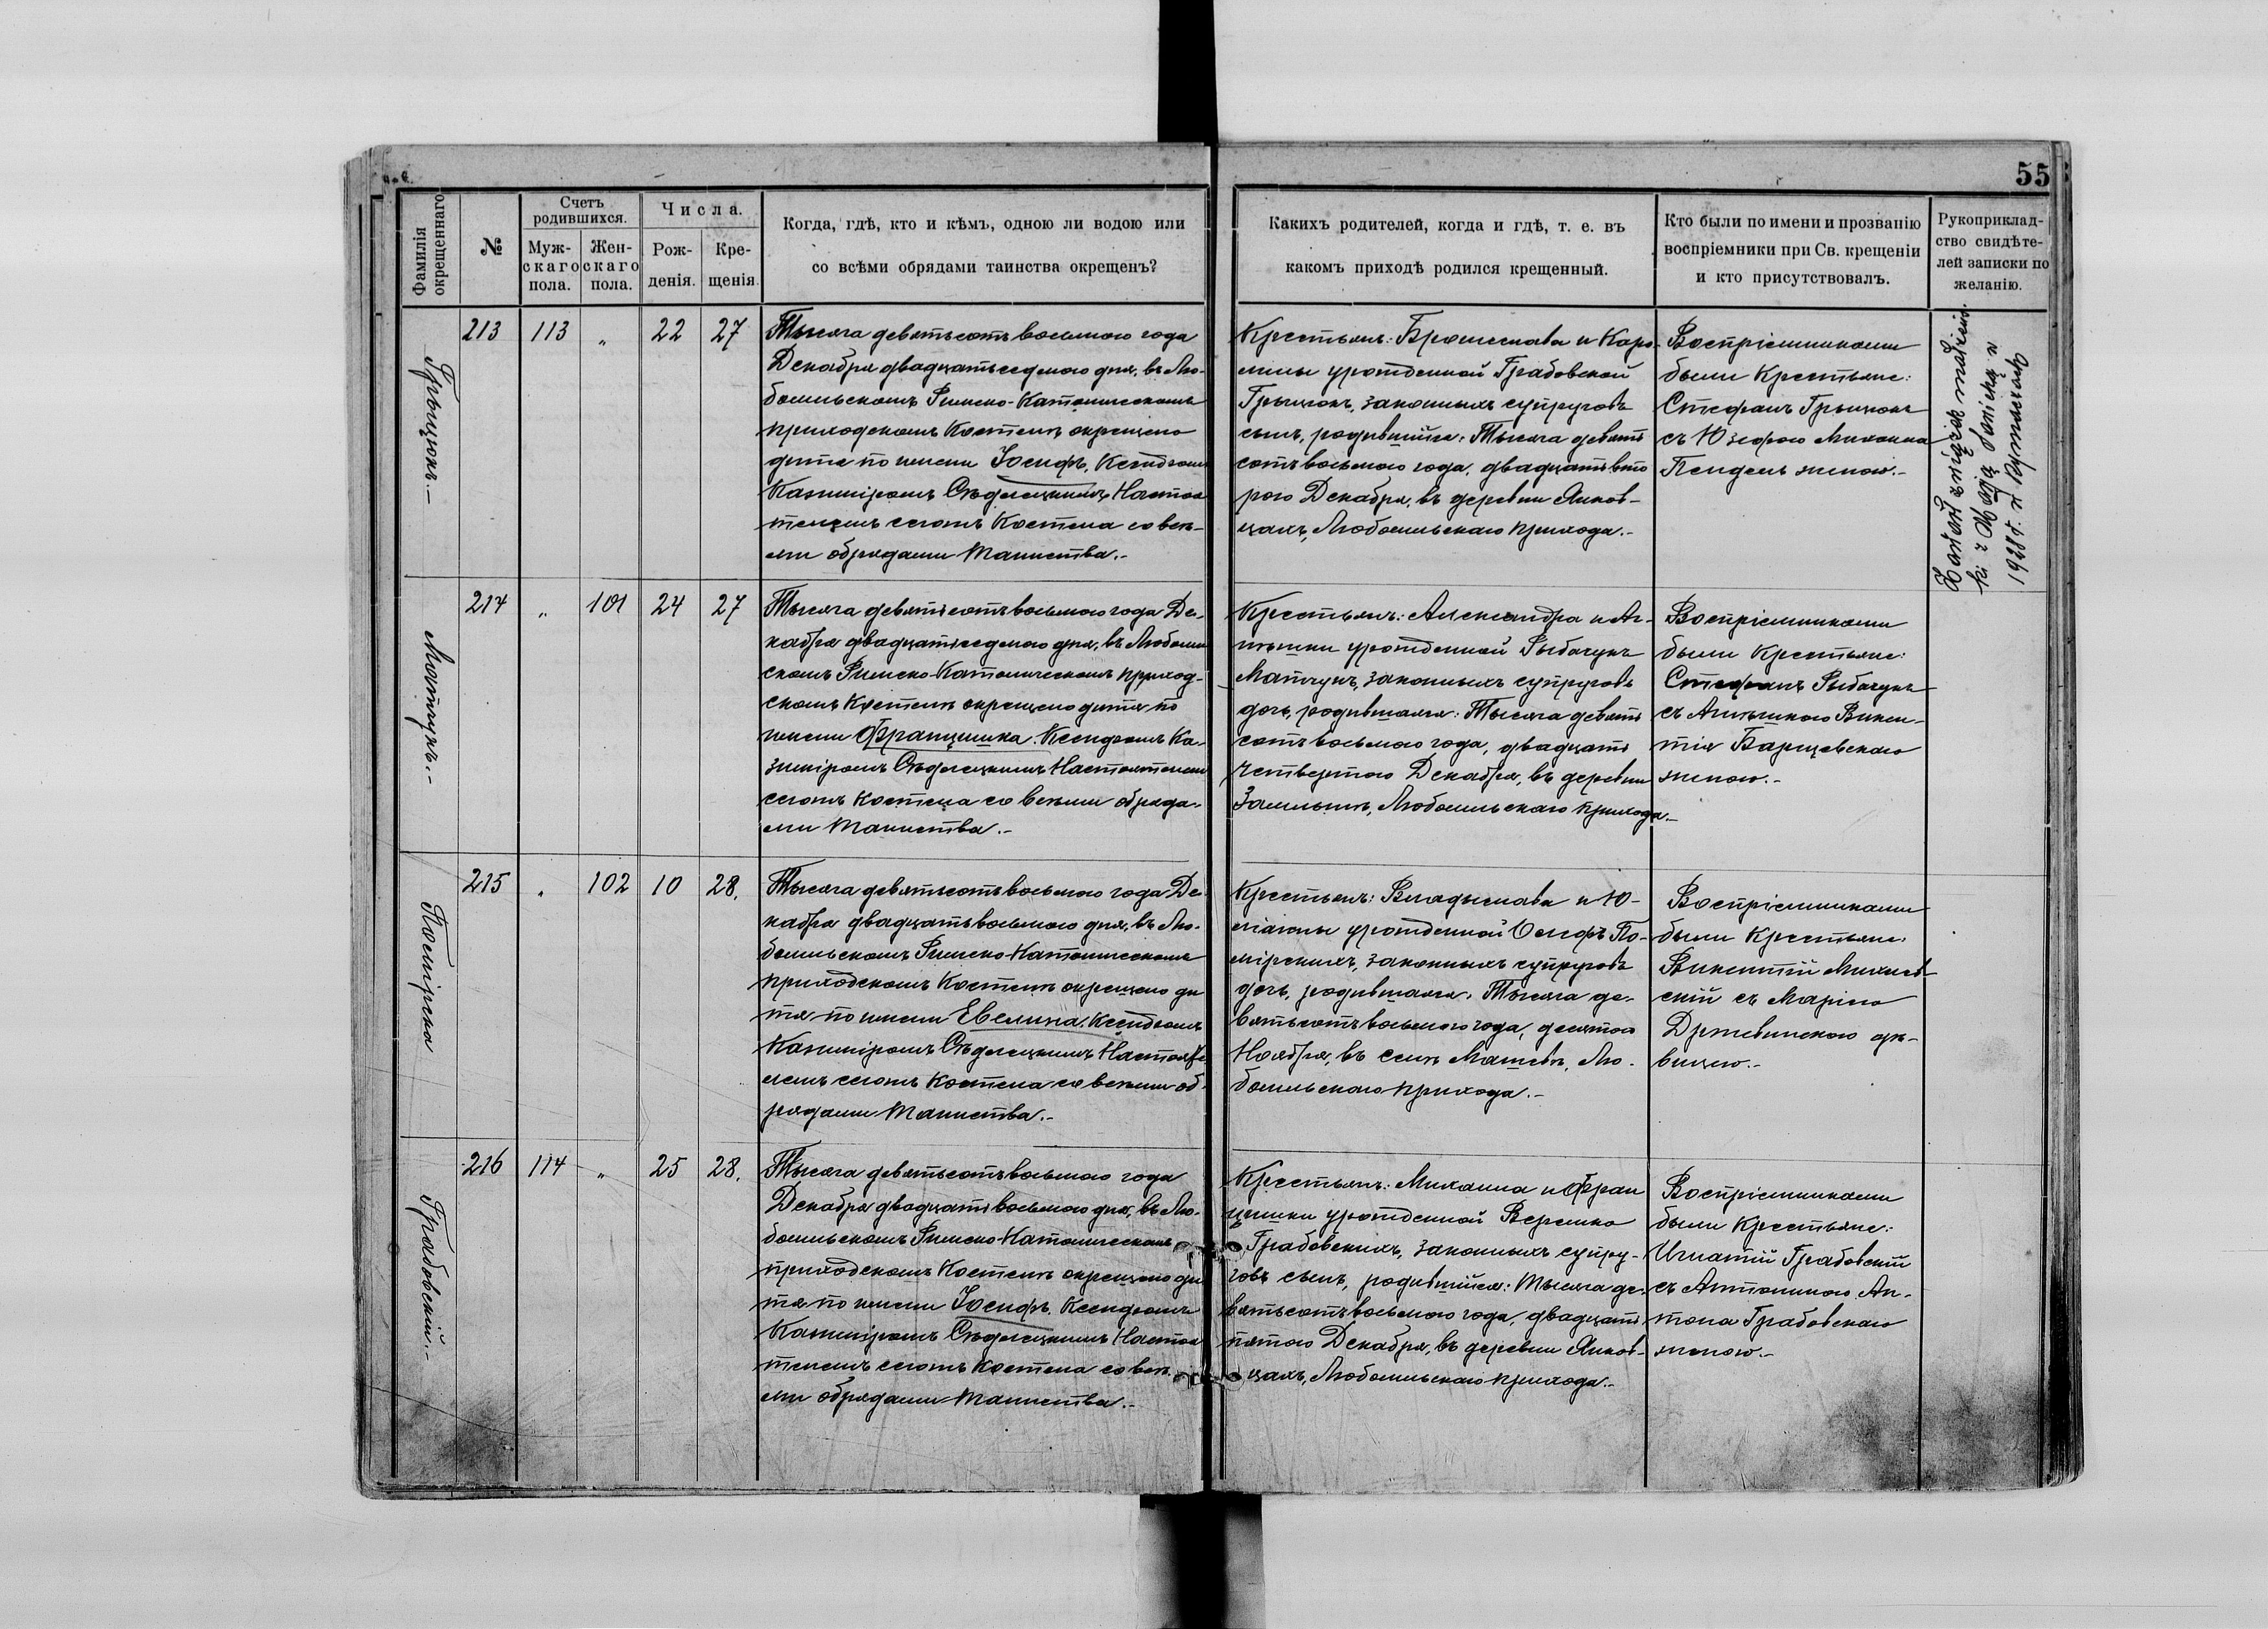 55
Фамилія
окрещеннаго
№
Счетъ
родившихся.
Муж-
скаго
пола.
Жен-
скаго
пола.
Числа.
Рож-
денія.
Кре-
щенія.
Когда, гдѣ, кто и кѣмъ, одною ли водою или
со всѣми обрядами таинства окрещенъ?
Какихъ родителей, когда и гдѣ, т. е. въ
какомъ приходѣ родился крещенный.
Кто были по имени и прозванію
воспріемники при Св. крещеніи
и кто присутствовалъ.
Рукоприклад-
ство свидѣте-
лей записки по
желанію.
Грыцюкъ.-
213 113 „ 22 27
Тысяча девятьсотъ восьмого года
Декабря двадцатьседмого дня, въ Лю-
бомльскомъ Римско-Католическомъ
приходскомъ Костелѣ окрещено
дитя по имени Іосифъ, Ксендзомъ
Казиміромъ Сѣдлецкимъ Настоя
телемъ сегожъ Костела со всѣ-
ми обрядами Таинства.-
Крестьянъ: Брониславa и Каро-
лины урожденной Грабовской
Грыцюкъ, законныхъ супруговъ
сынъ, родившійся: Тысяча девять
сотъ восьмого года, двадцать вто
рого Декабря, въ деревни Янков-
цахъ, Любомльскаго прихода.-
Воспріемниками
были Крестьяне:
Стефанъ Грыцюкъ
съ Юзефою Михаила
Пендель женою.-
Zawarł związek małżeń
ki z
1928 r. w
Мотчукъ.-
214 „ 101 24 27
Тысяча девятьсотъ восьмого года Де-
кабря двадцатьседмого дня, въ Любомль
скомъ Римско-Католическомъ приход-
скомъ Костелѣ окрещено дитя по
имени Францишка. Ксендзомъ Ка-
зиміромъ Сѣдлецкимъ Настоятелемъ
сегожъ Костела со всѣми обряда-
ми Таинства.-
Крестьянъ: Александра и Аг-
нѣшки урожденной Рыбачукъ
Матчукъ, законныхъ супруговъ
дочь, родившаяся: Тысяча девять
сотъ восьмого года, двадцать
четвертого Декабря, въ деревни
Замлынѣ, Любомльскаго прихода.-
Воспріемниками
были Крестьяне:
Стефанъ Рыбачукъ
съ Агнѣшкою Викен-
тія Барщевскаго
женою.-
Помірска
215 „ 102 10 28.
Тысяча девятьсотъ восьмого года Де
кабря двадцатьвосьмого дня, въ Лю-
бомльскомъ Римско-Католическомъ
приходскомъ Костелѣ окрещено ди
тя по имени Евелина, Ксендзомъ
Казиміромъ Сѣдлецкимъ Настояте
лемъ сегожъ Костела со всѣми об-
рядами Таинства.-
Крестьянъ: Владыслава и Ю-
ліанны урожденной Осефъ По-
мірскихъ, законныхъ супруговъ
дочь, родившаяся: Тысяча де-
вятьсотъ восьмого года, десятого
Ноября, въ селѣ Мацевѣ, Лю-
бомльскаго прихода.-
Воспріемниками
были Крестьяне:
Викентій Михалев
скій съ Маріею
Држевинскою дѣ-
вицею.-
Грабовскій.-
216 114 „ 25 28.
Тысяча девятьсотъ восьмого года
Декабря двадцатьвосьмого дня, въ Лю-
бомльскомъ Римско-Католическомъ
приходскомъ Костелѣ окрещено ди
тя по имени Іосифъ, Ксендзомъ
Казиміромъ Сѣдлецкимъ Настоя
телемъ сегожъ Костела со всѣ-
ми обрядами Таинства.-
Крестьянъ: Михаила и Фран
цишки урожденной Верешко
Грабовскихъ, законныхъ супру-
говъ сынъ, родившійся: Тысяча де-
вятьсотъ восьмого года, двадцать
пятого Декабря, въ деревни Янков-
цахъ, Любомльскаго прихода.-
Воспріемниками
были Крестьяне:
Игнатій Грабовскій
съ Антониною Ан-
тона Грабовскаго
женою.-